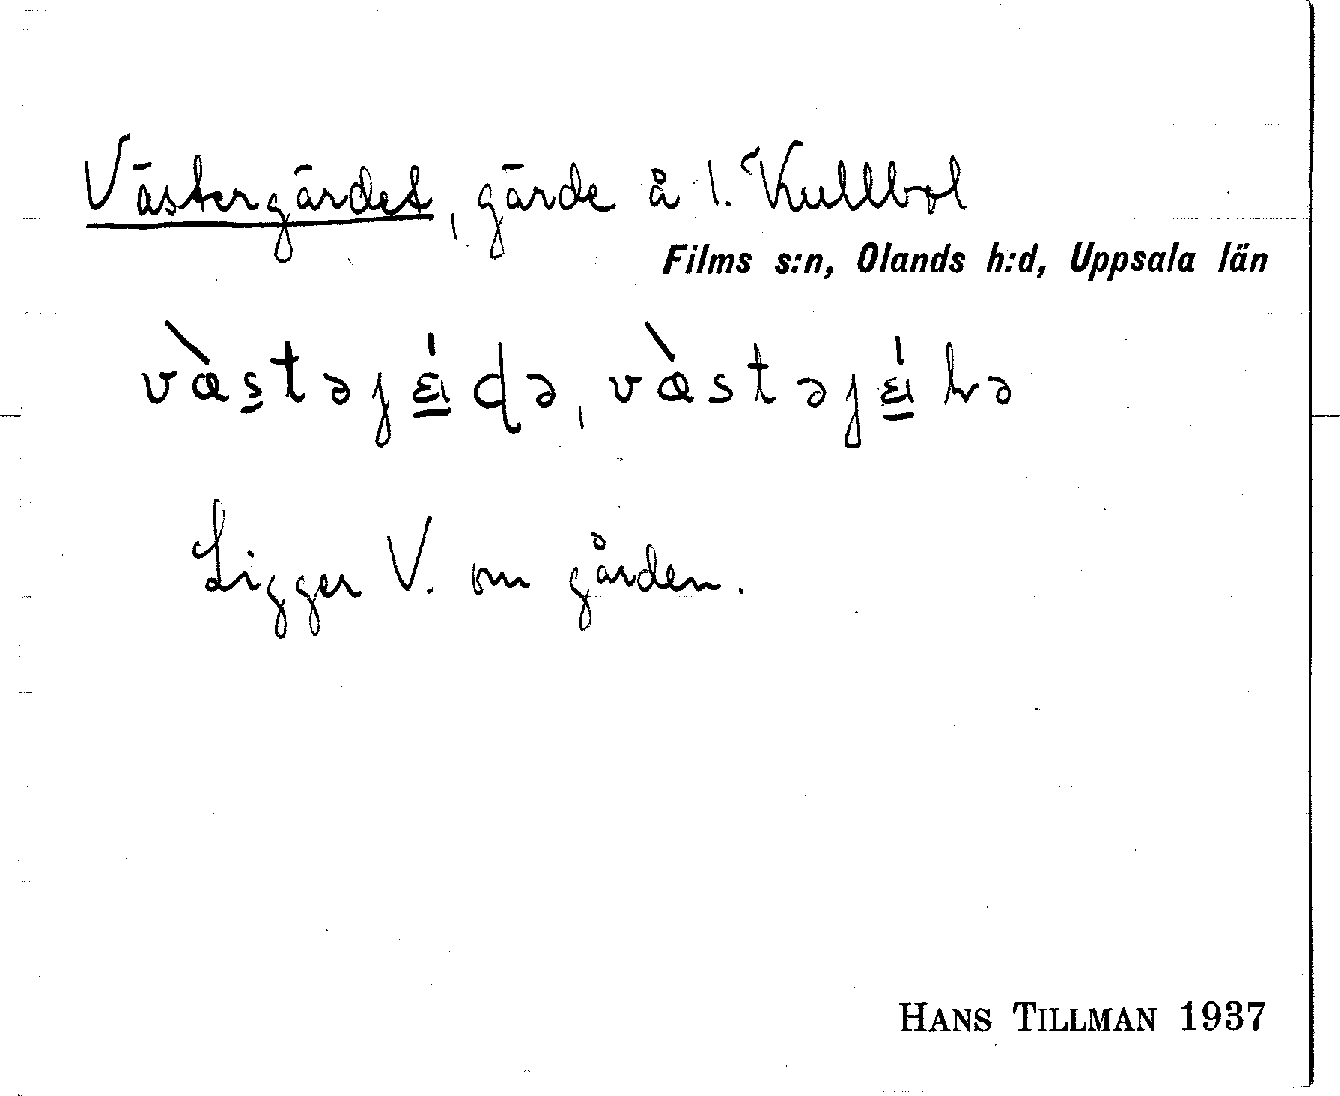 Västergärdet, gärde å 1. Kullbol
Films s:n, Olands h:d, Uppsala län
Ligger V. om gården.
HANS TILLMAN 1937